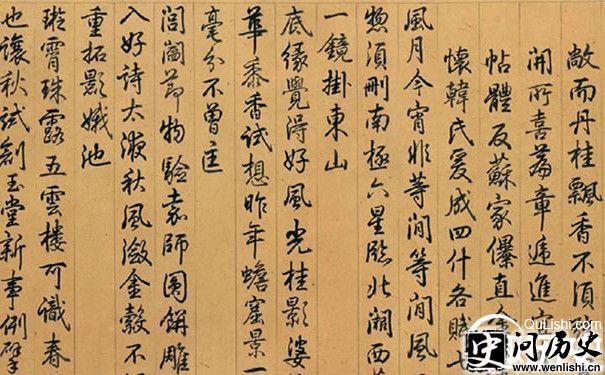 敞而丹桂飄香不須
開所喜篇章遞進
帖體反蘇家儤直
懷韓氏爰成四什各賦七
風月今宵非等閒等閒風
惣須刪南極六星臨北湖西
一鏡掛東山
底緣覺得好風光桂影婆
華黍香試想昨年蟾窟景一
毫分不曾匡
閶闔節物驗嘉師圓餅雕
入好詩太液秋風澂金縠不
重拓影娥池
璇霄珠露五雲樓可識春
也讓秋試創玉堂新事例擘
QuLiShi.com
史问历史
www.wenlishi.cn